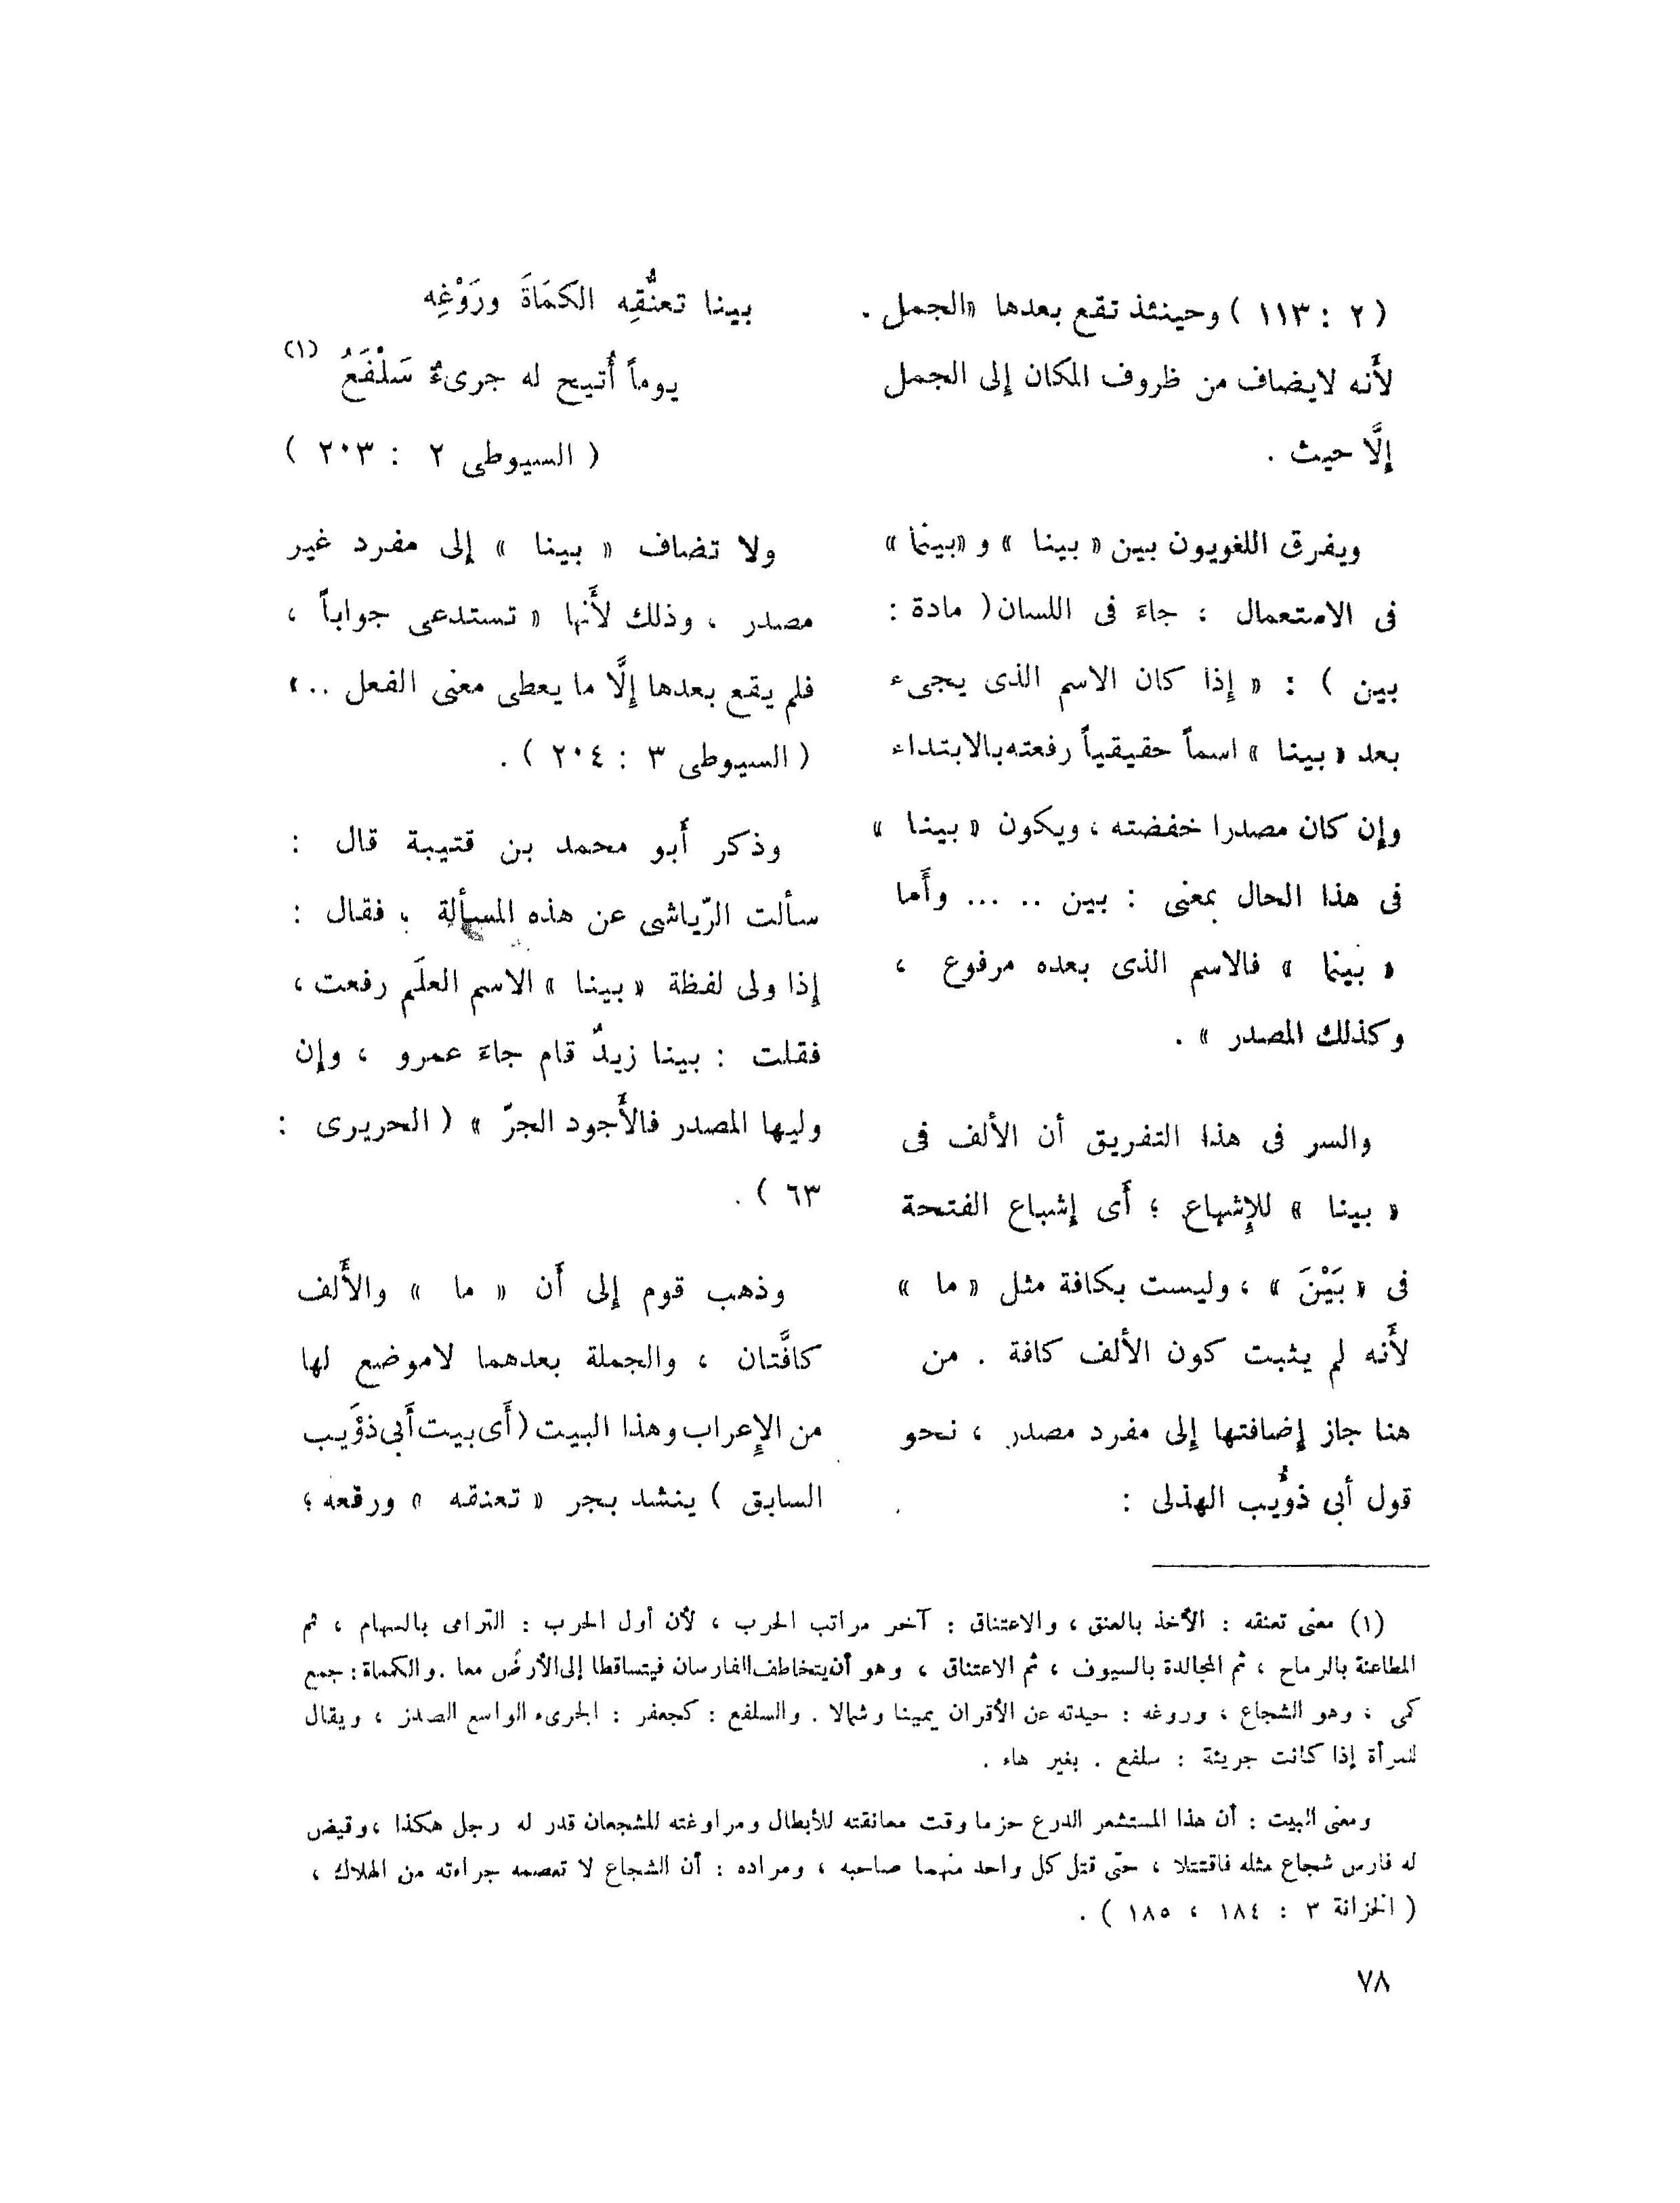 ( ٢ : ١١٣ ) وحينئذ تقع بعدها «الجمل .
لأَنه لايضاف من ظروف المكان إلى الجمل
إلَّا حيث .
ويفرق اللغويون بين « بينا » و «بينما »
فى الاستعمال : جاءَ فى اللسان ( مادة :
بين ) : « إذا كان الاسم الذى يجىء
بعد « بينا » اسماً حقيقياً رفعته بالابتداء
وإن كان مصدرا خفضته ، ويكون « بينا »
فى هذا الحال بمعنى : بين .. ... وأَما
« بينما » فالاسم الذى بعده مرفوع ،
وكذلك المصدر » .
والسر فى هذا التفريق أن الألف فى
« بينا » للإِشباع ؛ أَى إشباع الفتحة
فى « بَيْنَ » ، وليست بكافة مثل « ما »
لأَنه لم يثبت كون الألف كافة . من
هنا جاز إضافتها إلى مفرد مصدر ، نحو
قول أبى ذؤُيب الهذلى :
بينا تعنُّقِه الكمَاةَ ورَوْغِه
يوماً أُتيح له جرىءٌ سَلْفَعُ (١)
( السيوطى ٢ : ٢٠٣ )
ولا تضاف « بينا » إلى مفرد غير
مصدر ، وذلك لأَنها « تستدعى جواباً ،
فلم يقع بعدها إلَّا ما يعطى معنى الفعل .. »
( السيوطى ٣ : ٢٠٤ ) .
وذكر أَبو محمد بن قتيبة قال :
سألت الرّياشى عن هذه المسأَلة ، فقال :
إذا ولى لفظة « بينا » الاسم العلَم رفعت ،
فقلت : بينا زيدٌ قام جاءَ عمرو ، وإن
وليها المصدر فالأَجود الجرّ » ( الحريرى :
٦٣ ) .
وذهب قوم إلى أَن « ما » والأَلف
كافَّتان ، والجملة بعدهما لاموضع لها
من الإِعراب وهذا البيت ( أَى بيت أَبى ذؤَيب
السابق ) ينشد بجر « تعنقه » ورفعه ؛
(١) معنى تعنقه : الأخذ بالعنق ، والاعتناق : آخر مراتب الحرب ، لأن أول الحرب : الترامى بالسهام ، ثم
المطاعنة بالرماح ، ثم المجالدة بالسيوف ، ثم الاعتناق ، وهو أن يتخاطف الفارسان فيتساقطا إلى الأرض معا . والكماة : جمع
كمى ، وهو الشجاع ، وروغه : حيدته عن الأقران يمينا وشمالا . والسلفع : كجعفر : الجرىء الواسع الصدر ، ويقال
للمرأة إذا كانت جريئة : سلفع . بغير هاء .
ومعنى البيت : أن هذا المستشعر الدرع حزما وقت معانقته للأبطال ومراوغته للشجعان قدر له رجل هكذا ، وقيض
له فارس شجاع مثله فاقتتلا ، حتى قتل كل واحد منهما صاحبه ، ومراده : أن الشجاع لا تعصمه جراءته من الهلاك ،
( الخزانة ٣ : ١٨٤ ، ١٨٥ ) .
٧٨